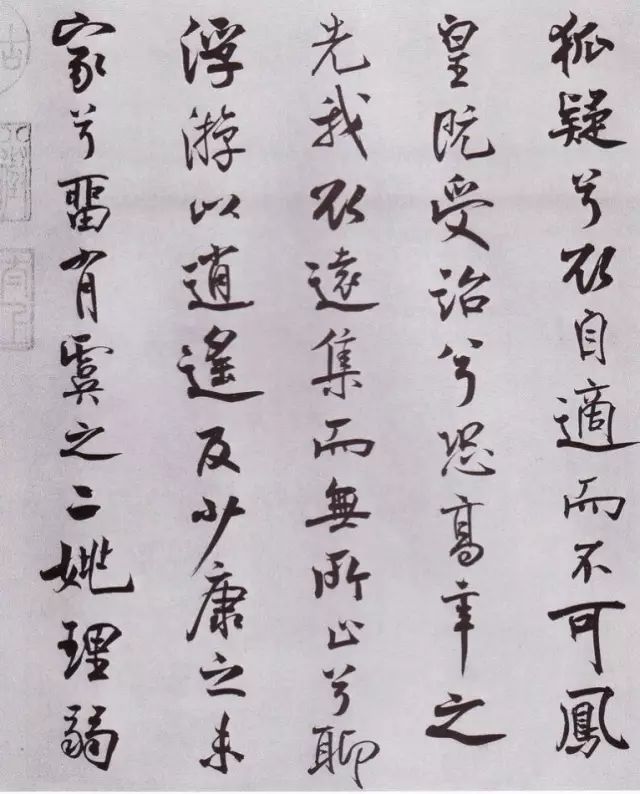 狐疑兮欲自適而不可鳳
皇既受詒兮恐高辛之
先我欲遠集而無所止兮聊
浮游以逍遙及少康之未
家兮留有虞之二姚理弱